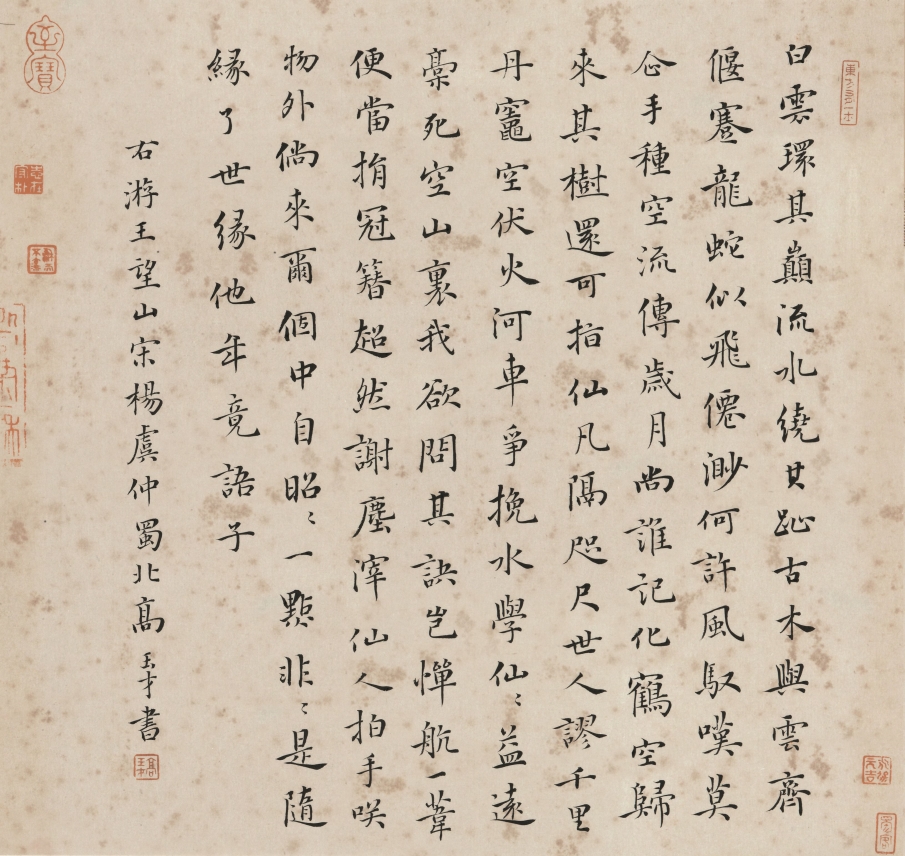 白雲環其巔流水繞其趾古木與雲齊
偃蹇龍蛇似飛僊渺何許風馭嘆莫
仚手種空流傳歲月尚誰記化鶴空歸
來其樹還可指仙凡隔咫尺世人謬千里
丹竈空伏火河車爭挽水學仙〻益遠
槀死空山裏我欲問其訣豈憚航一葦
便當捐冠簪超然謝塵滓仙人拍手咲
物外倘來爾個中自昭〻一點非〻是隨
緣了世緣他年竟語子
右游王望山宋楊虞仲蜀北高玉才書